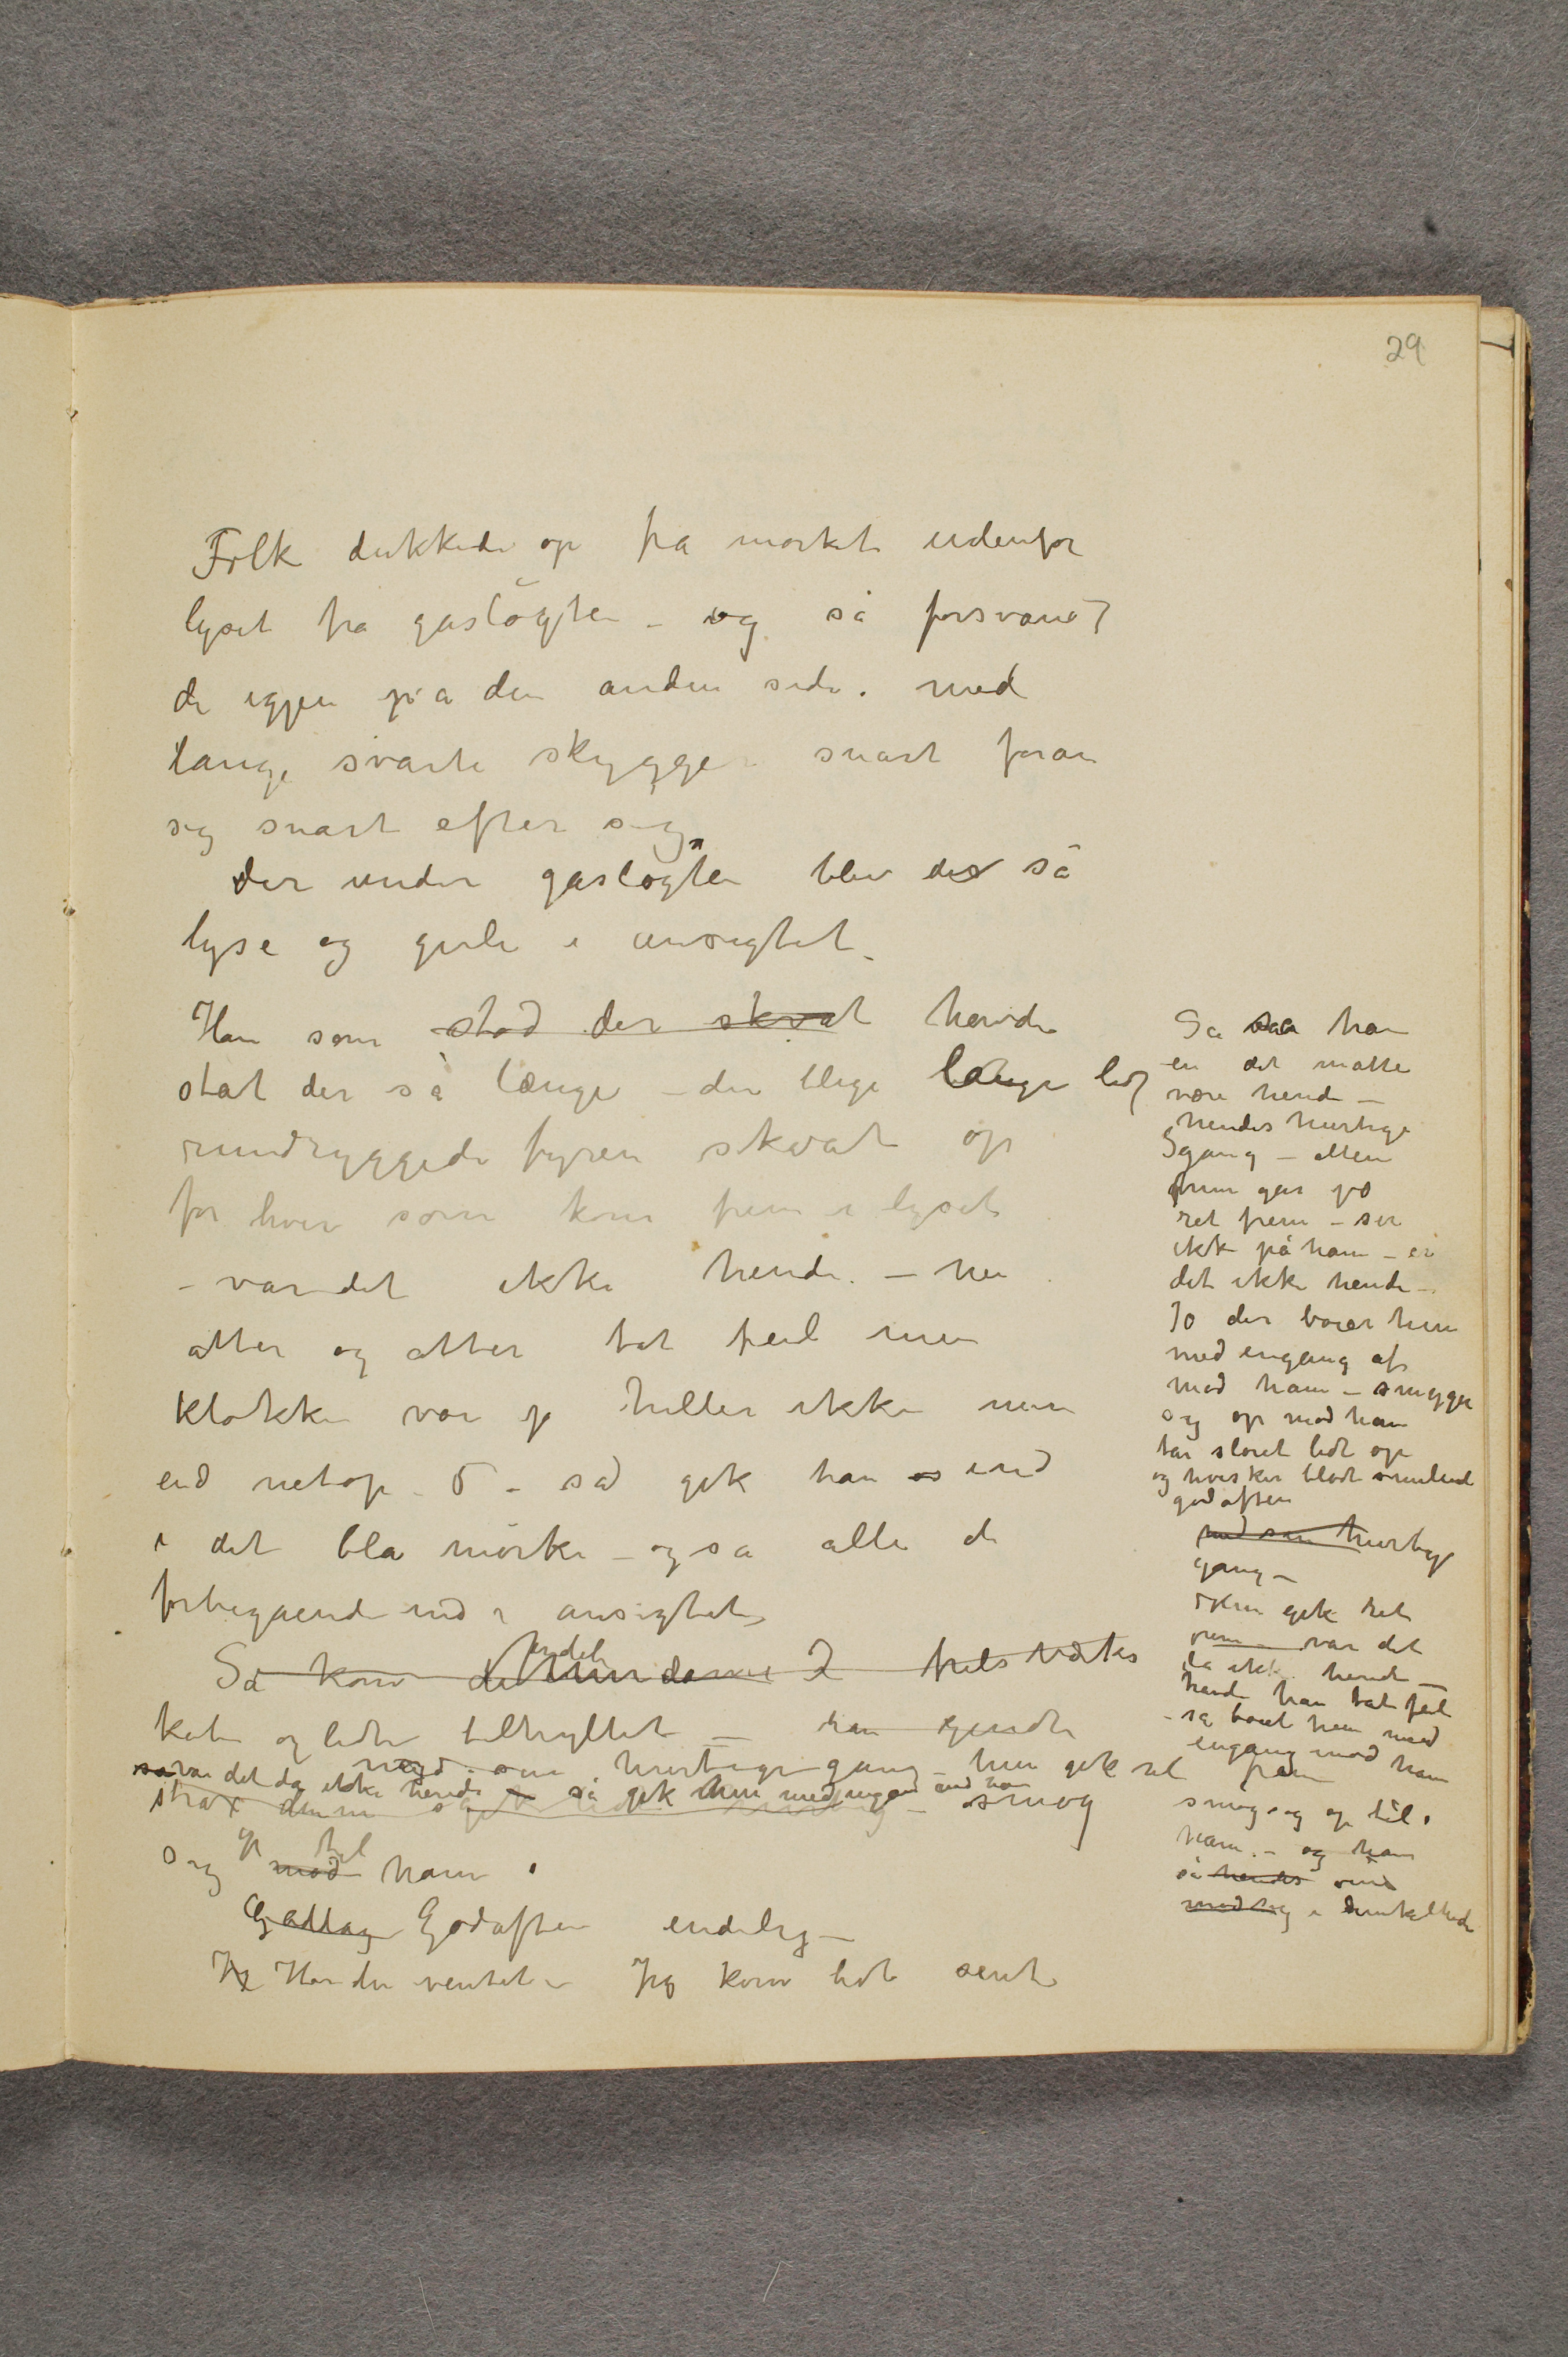 29
Folk dukkede op fra mørket udenfor
lyset fra gasløgten – og så forsvandt
de igjen på den anden side. med
lange svarte skygger snart foran
sig snart efter sig
Der under gasløgten blev de så
lyse og gule i ansigtet.
Han som stod der skvat havde
stat der så længe – den blege lange lidt
rundryggede fyren skvat op
for hver som kom frem i lyset
– var det ikke hende – nei
atter og atter tat feil men
klokken var jo heller ikke mer
end netop 5 – så gik han ind
i det blå mørke – og så alle de
forbigående ind i ansigtet
Så kom de endelig
kåbe og lidt tilhyllet –
med sin hurtige gang – hun gik ret frem
så var det da ikke hende – så gik hun med engang
strax smøg
sig op mod til ham
Godaften endelig –
Jeg Har du ventet – Jeg kom lidt sent
Så saa han
en det måtte
være hende –
hendes hurtige
gang – atten
hun går jo
ret frem – ser
ikke på ham – er
det ikke hende –
Jo der bøier hun
med engang af
mod ham – smyger
sig op mod ham
tar sløret lidt op
og hvisker blødt smilende
godaften
med sin hurtige
gang –
Hun gik ret
frem – var det
da ikke hende –
havde han tat feil
– så bøiet hun med
engang mod ham
smøg sig op til
ham. – og han
så hendes
med sig i dunkelhede